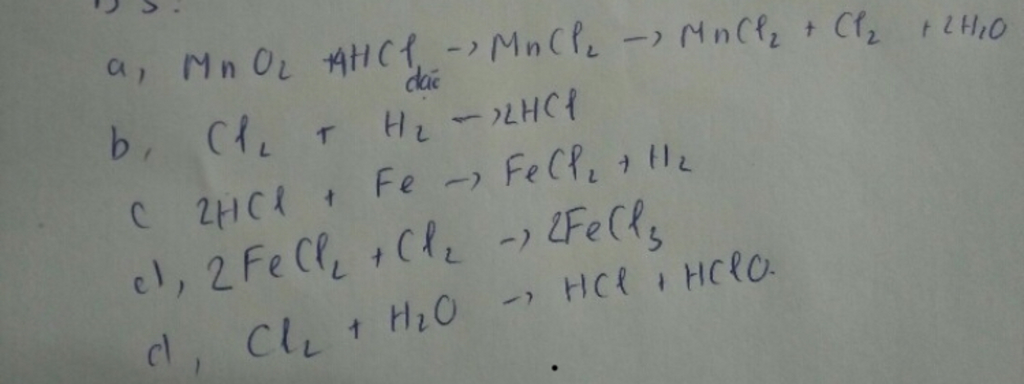 a, MnO₂ + 4HCl đặc -> MnCl₂ -> MnCl₂ + Cl₂ + 2H₂O
b, Cl₂ + H₂ -> 2HCl
c 2HCl + Fe -> FeCl₂ + H₂
d, 2FeCl₂ + Cl₂ -> 2FeCl₃
d, Cl₂ + H₂O -> HCl + HClO.